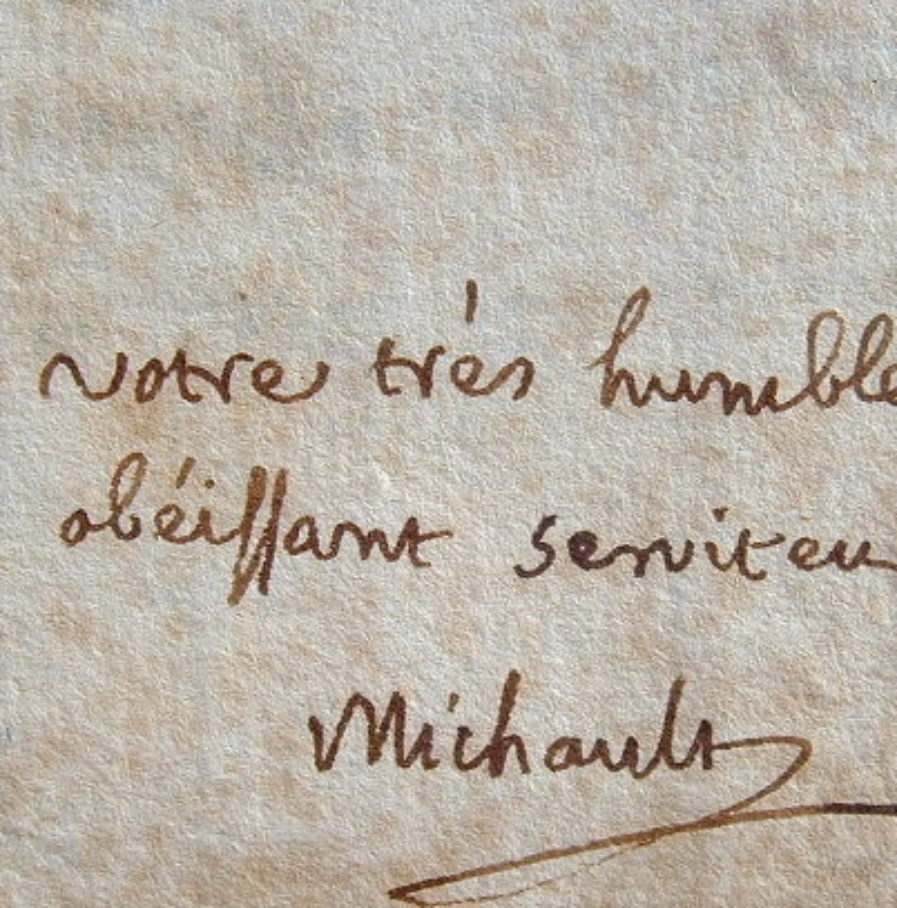 votre très humble
obéissant serviteu
Michault